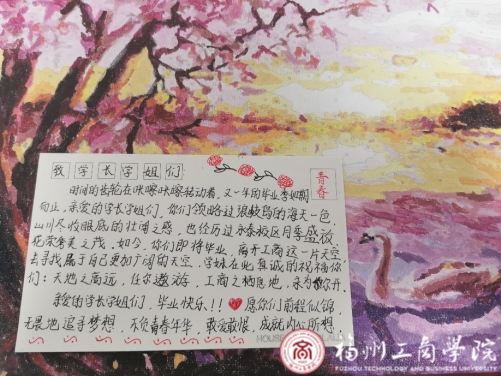 致学长学姐们
青春
时间的齿轮在咔嚓咔嚓转动着,又一年的毕业季如期
而止,亲爱的学长学姐们,你们领略过琅岐岛的海天一色,
山川尽收眼底的壮阔之感,也经历过永泰校区月季盛放,
花荣秀美之茂,如今,你们即将毕业,离开工商这一片天空,
去寻找属于自己更加广阔的天空,学妹在此真诚的祝福你
们:天地之高远,任尔遨游,工商之栖息地,永为你开,
亲爱的学长学姐们,毕业快乐!!愿你们前程似锦,
无畏地追寻梦想,不负青春年华,敢爱敢恨,成就内心所想
福州工商学院
FUZHOU TECHNOLOGY AND BUSINESS UNIVERSITY